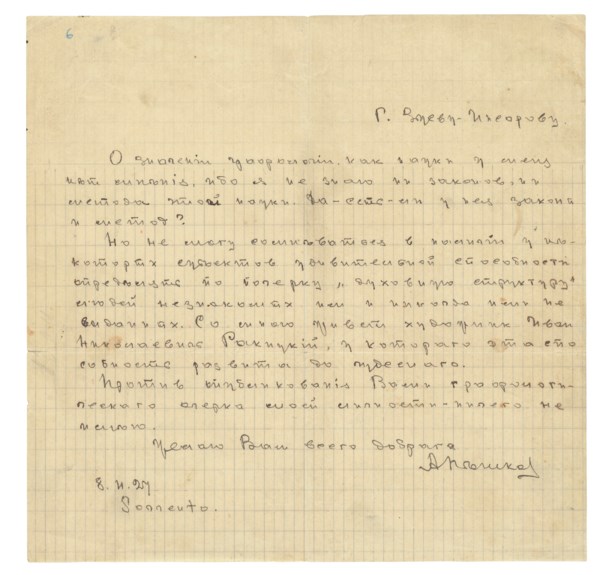 6
Г. Зуеву-Инсарову.
О значеніи графологіи, как науки у меня
нет мнѣнія, ибо я не знаю ни законов, ни
метода этой науки. Да – есть-ли у нея закона
и метод?
Но не могу сомнѣваться в наличіи у нѣ-
которых субъектов удивительной способности
определять по почерку „духовную структуру"
людей незнакомых им и никогда ими не
виданных. Со мною живет художник Иван
Николаевич Ракицкій, у котораго эта спо
собность развита до чудеснаго.
Против опубликованія Вами графологи-
ческаго очерка моей личности – ничего не
имею.
Желаю Вам всего добраго
А Пешков
27
Sorrento.